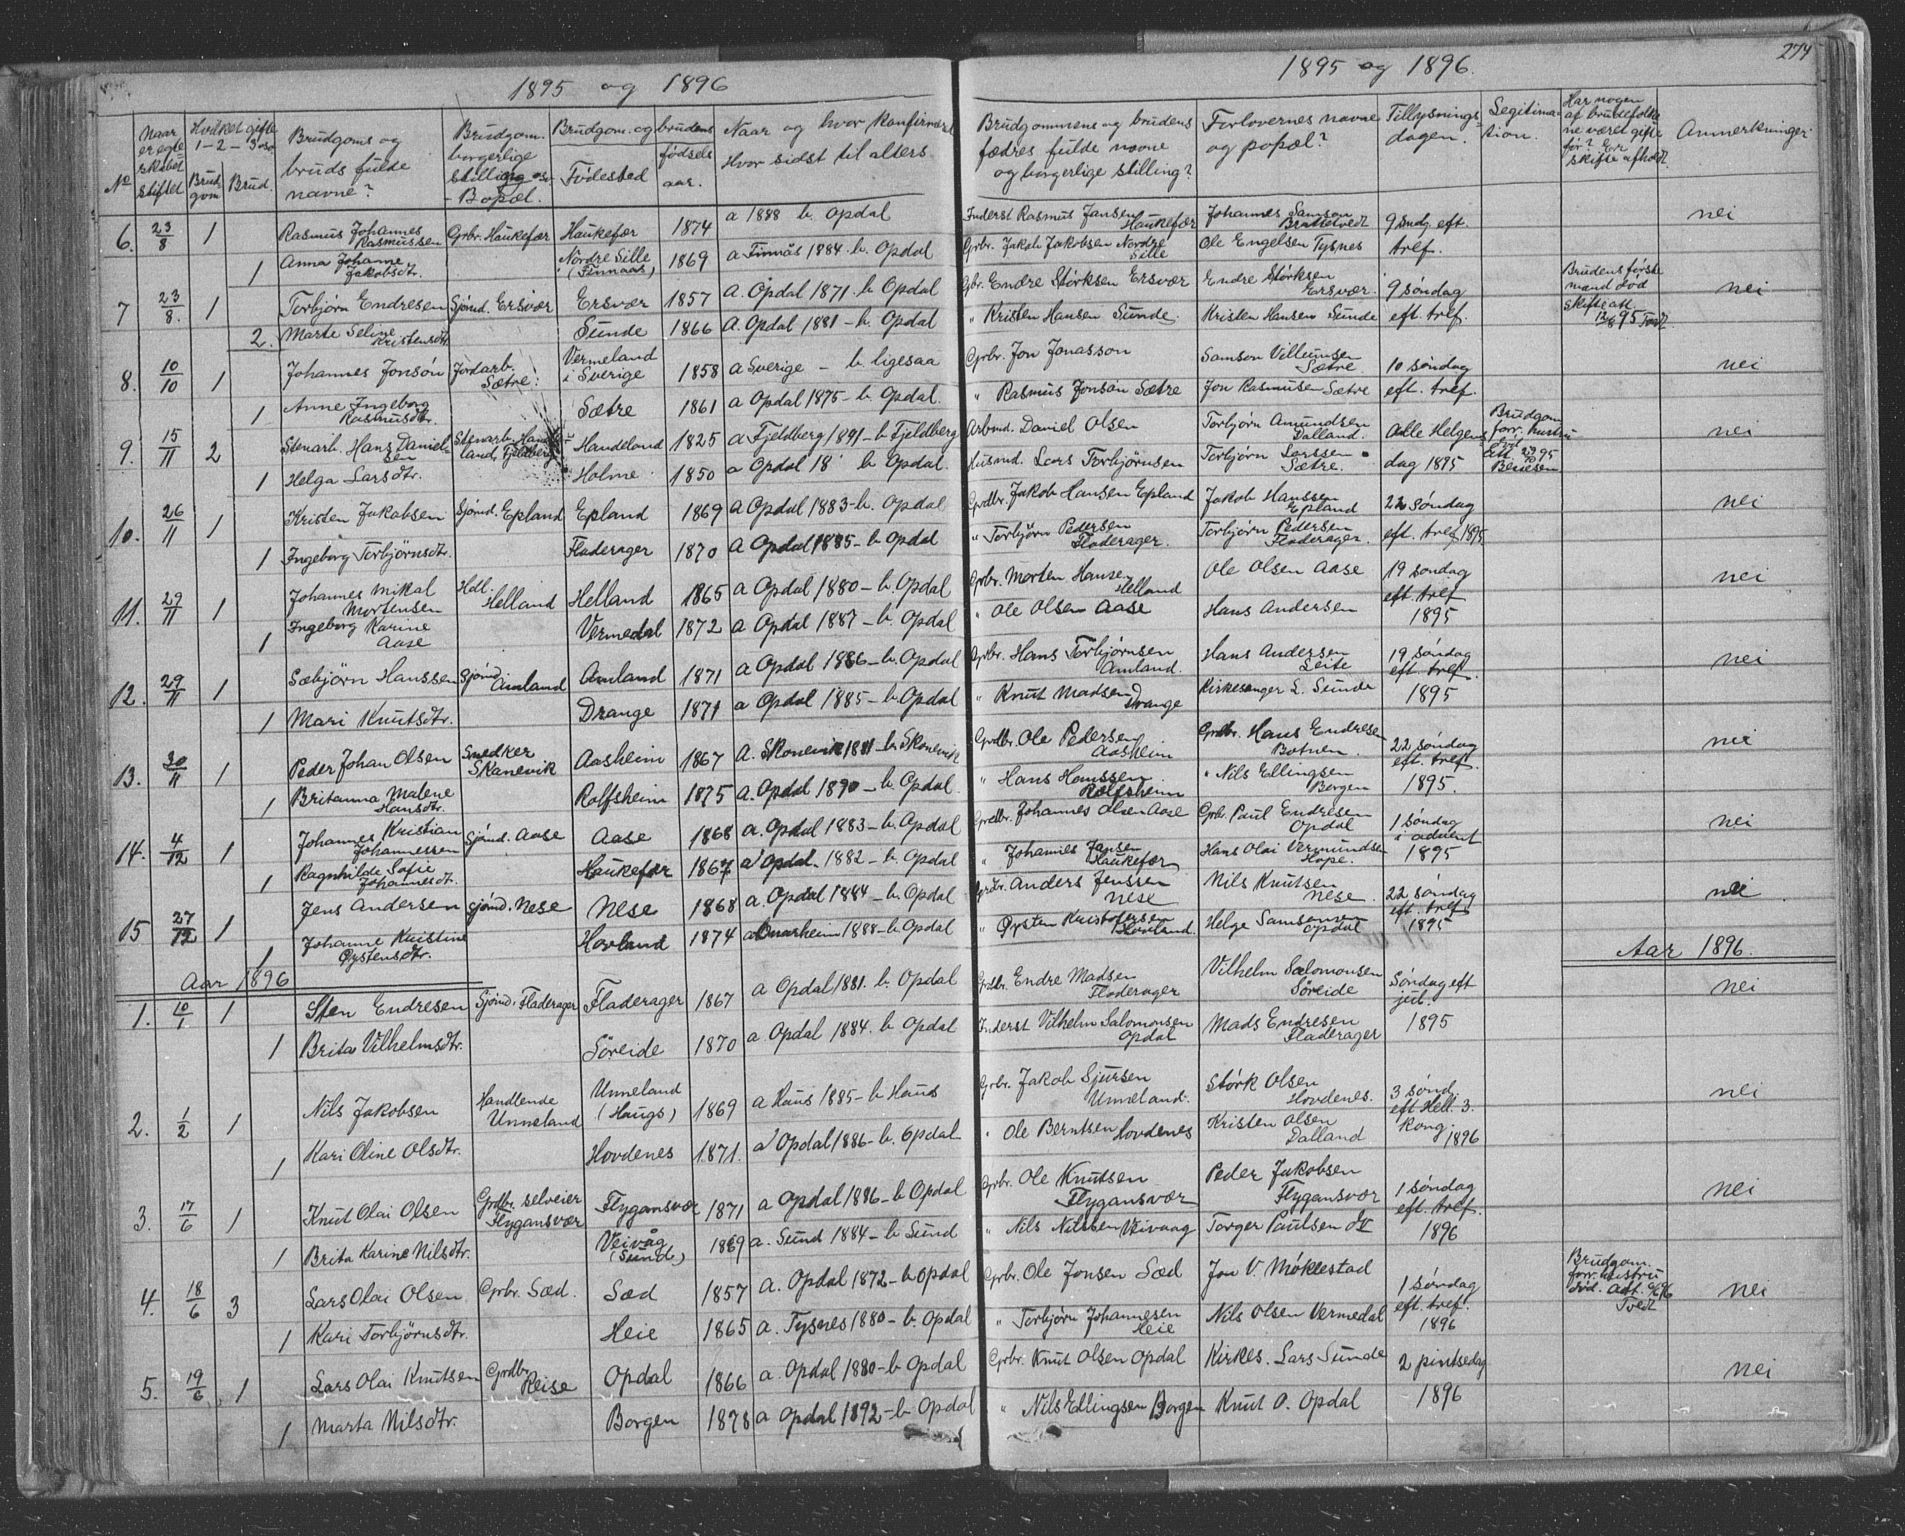 1895 og 1896
1895 og 1896.
274
No
Naar er egteskabet stiftet
Hvilket gifte 1-2-3 o.s.v.
Brudgom
Brud.
Brudgoms og bruds fulde navne?
Brudgom. borgerlige stilling
Bopæl.
Brudgom. og brudens
Födested
födselsaar.
Naar og hvor konfirmeret
Hvor sidst til alters
Brudgommens og brudens fædres fulde navne og borgerlige stilling?
Forlovernes navne og popæl?
Tillysningsdagen.
Legitimation.
Har nogen af brudefolkene været gifte för? Er skifte afholdt
Anmerkninger
6. 23/8 1 Rasmus Johannes Rasmussen Grbr. Haukefær Haukefær 1874 a 1888 b. Opdal Inderst Rasmus Jansen Haukefær Johannes Samson Brattetvedt 9 sndg. eft. nei
1 Anna Johanne Jakobsdtr. Nordre Lille (Finnaas) 1869 a Finnås 1884 - b. Opdal Grbr. Jakob Jakobsen Nordre Lille Ole Engelsen Tysnes tref.
7 23/8. 1 Torbjørn Endresen Sjömd. Ersvær Ersvær 1857 a. Opdal 1871 - b. Opdal Gbr. Endre Størksen Ersvær Endre Størksen Ersvær. 9 söndag Brudens förste mand död nei
2. Marte Seline Kristensdtr Sunde 1866 a. Opdal 1881 - b. Opdal " Kristen Hansen Sunde. Kristen Hansen Sunde eft. tref. skifteatt. 95 Tvedt
8. 10/10 1 Johannes Jonsön Jordarb. Sætre. Vermeland i Sverige 1858 a Sverige - b ligesaa Grbr. Jon Jonasson Samson Villumsen Sætre. 10 söndag nei
1 Anne Ingeborg Rasmusdtr. Sætre 1861 a Opdal 1875 - b. Opdal. " Rasmus Jonsön Sætre Jon Rasmusen Sætre eft. tref.
9. 15/11 2 Stenarb. Hans Danielsen Stenarb. Handeland, Fjeldberg Handeland 1825 a Fjeldberg 1891 - b Fjeldberg Arbmd. Daniel Olsen Torbjørn Amundsen Dalland. Alle Helgens Brudgom. forr. hustru död nei
1 Helga Larsdtr. Holme 1850 a Opdal 18 b Opdal. Husmd. Lars Torbjørnsen Torbjørn Larssen Sætre. dag 1895 att. 95
10. 26/11 1 Kristen Jakobsen Sjömd. Epland Epland 1869 a Opdal 1883 - b. Opdal Grdbr. Jakob Hansen Epland Jakob Hanssen Epland 22 söndag nei
1 Ingeborg Torbjørnsdtr. Fladerager 1870 a Opdal 1885 - b Opdal " Torbjørn Pedersen Fladerager. Torbjørn Pedersen Fladerager. eft. tref. 1895
11. 29/11 1 Johannes Mikal Mortensen Hdl. Helland Helland 1865 a Opdal 1880 - b. Opdal Grbr. Morten Hansen Helland Ole Olsen Aase 19 söndag eft. tref nei
1 Ingeborg Karine Aase Vermedal 1872 a Opdal 1887 - b. Opdal " Ole Olsen Aase Hans Andersen 1895
12. 29/11 1 Sæbjörn Hanssen Sjömd. Amland Amland 1871 a Opdal 1886 - b. Opdal Grbr. Hans Torbjørnsen Amland. Hans Andersen Leite 19 söndag eft. tref. nei
1 Mari Knutsdtr. Drange 1871 a Opdal 1885 - b. Opdal " Knut Madsen Drange Kirkesanger L. Sunde 1895
13. 30/11 1 Peder Johan Olsen Snedker Skanevik Aasheim 1867 a. Skonevik 1881 - b. Skonevik Grdbr. Ole Pedersen Aasheim Grdbr. Hans Endresen Botnen. 22 söndag eft. tref. nei
1 Britanna Malene Hansdtr. Rolfsheim 1875 a. Opdal 1890 - b. Opdal. " Hans Hanssen Rolfsheim " Nils Ellingsen Borgen 1895.
14. 4/12 1 Johannes Kristian Johannessen Sjömd. Aase Aase 1868 a. Opdal 1883 - b. Opdal Grdbr. Johannes Olsen Aase Grbr. Paul Endresen Opdal 1 söndag i advent nei
1 Ragnhilde Sofie Johannesdt. Haukefær 1867 a Opdal. 1882 - b. Opdal " Johannes Jansen Haukefær Hans Olai Vermundsen Hope. 1895
15 27/12 1 Jens Andersen Sjömd. Nese Nese 1868 a. Opdal 1884 - b. Opdal Grdbr. Anders Jenssen Nese Nils Knutsen Nese. 22 söndag eft. tref. nei
1 Johanne Kristine Øystensdtr. Hovland 1874 a Onarheim 1888 - b. Opdal " Øysten Kristofersen Hovland Helge Samsonsen Opdal 1895
Aar 1896
Aar 1896.
1. 10/1 1 Sten Endresen Sjömd. Fladerager Fladerager 1867 a Opdal 1881. b. Opdal Grdbr. Endre Madsen Fladerager Vilhelm Salomonsen Söreide Söndag eft jul. nei
1 Brita Vilhelmsdtr. Söreide 1870 a Opdal 1884. b. Opdal Inderst Vilhelm Salomonsen Opdal Mads Endresen Fladerager 1895
2. 1/2 1 Nils Jakobsen Handlende Unneland Unneland (Haugs) 1869 a Haus 1885 - b Haus Grbr. Jakob Sjursen Unneland. Størk Olsen Hovdenes. 3 sönd. eft Hell. 3. nei
1 Kari Oline Olsdtr. Hovdenes 1871. a Opdal 1886 - b. Opdal " Ole Berntsen Hovdenes Kristen Olsen Dalland Kong. 1896
3. 17/6 1 Knut Olai Olsen Grdbr. selveier Flygansvær Flygansvær 1871 a Opdal 1886 - b Opdal Grbr. Ole Knutsen Flygansvær Peder Jakobsen Flygansvær 1 söndag eft. tref. nei
1 Brita Karine Nilsdtr. Veivåg (Sund) 1869 a. Sund 1884 - b Sund " Nils Nilssen Veivaag Torger Paulsen 1896
4. 18/6 3 Lars Olai Olsen Grbr. Sæd. Sæd 1857 a. Opdal 1872 - b Opdal Grbr. Ole Jonsen Sæd Jon V. Møklestad 1 söndag eft. tref. Brudgom. forr. hustru död. Att. 96 Tvedt nei
1 Kari Torbjörnsdtr. Heie 1865 a. Tysnes 1880 - b. Opdal " Torbjörn Johannesen Heie Nils Olsen Vermedal 1896
5. 19/6 1 Lars Olai Knutsen Grdbr. Reise Opdal 1866 a. Opdal 1880 - b. Opdal Grbr. Knut Olsen Opdal Kirkes. Lars Sunde 2 pintsedag nei
1 Marta Nilsdtr. Borgen 1878 a Opdal 1892 - b. Opdal " Nils Ellingsen Borgen Knut O. Opdal 1896